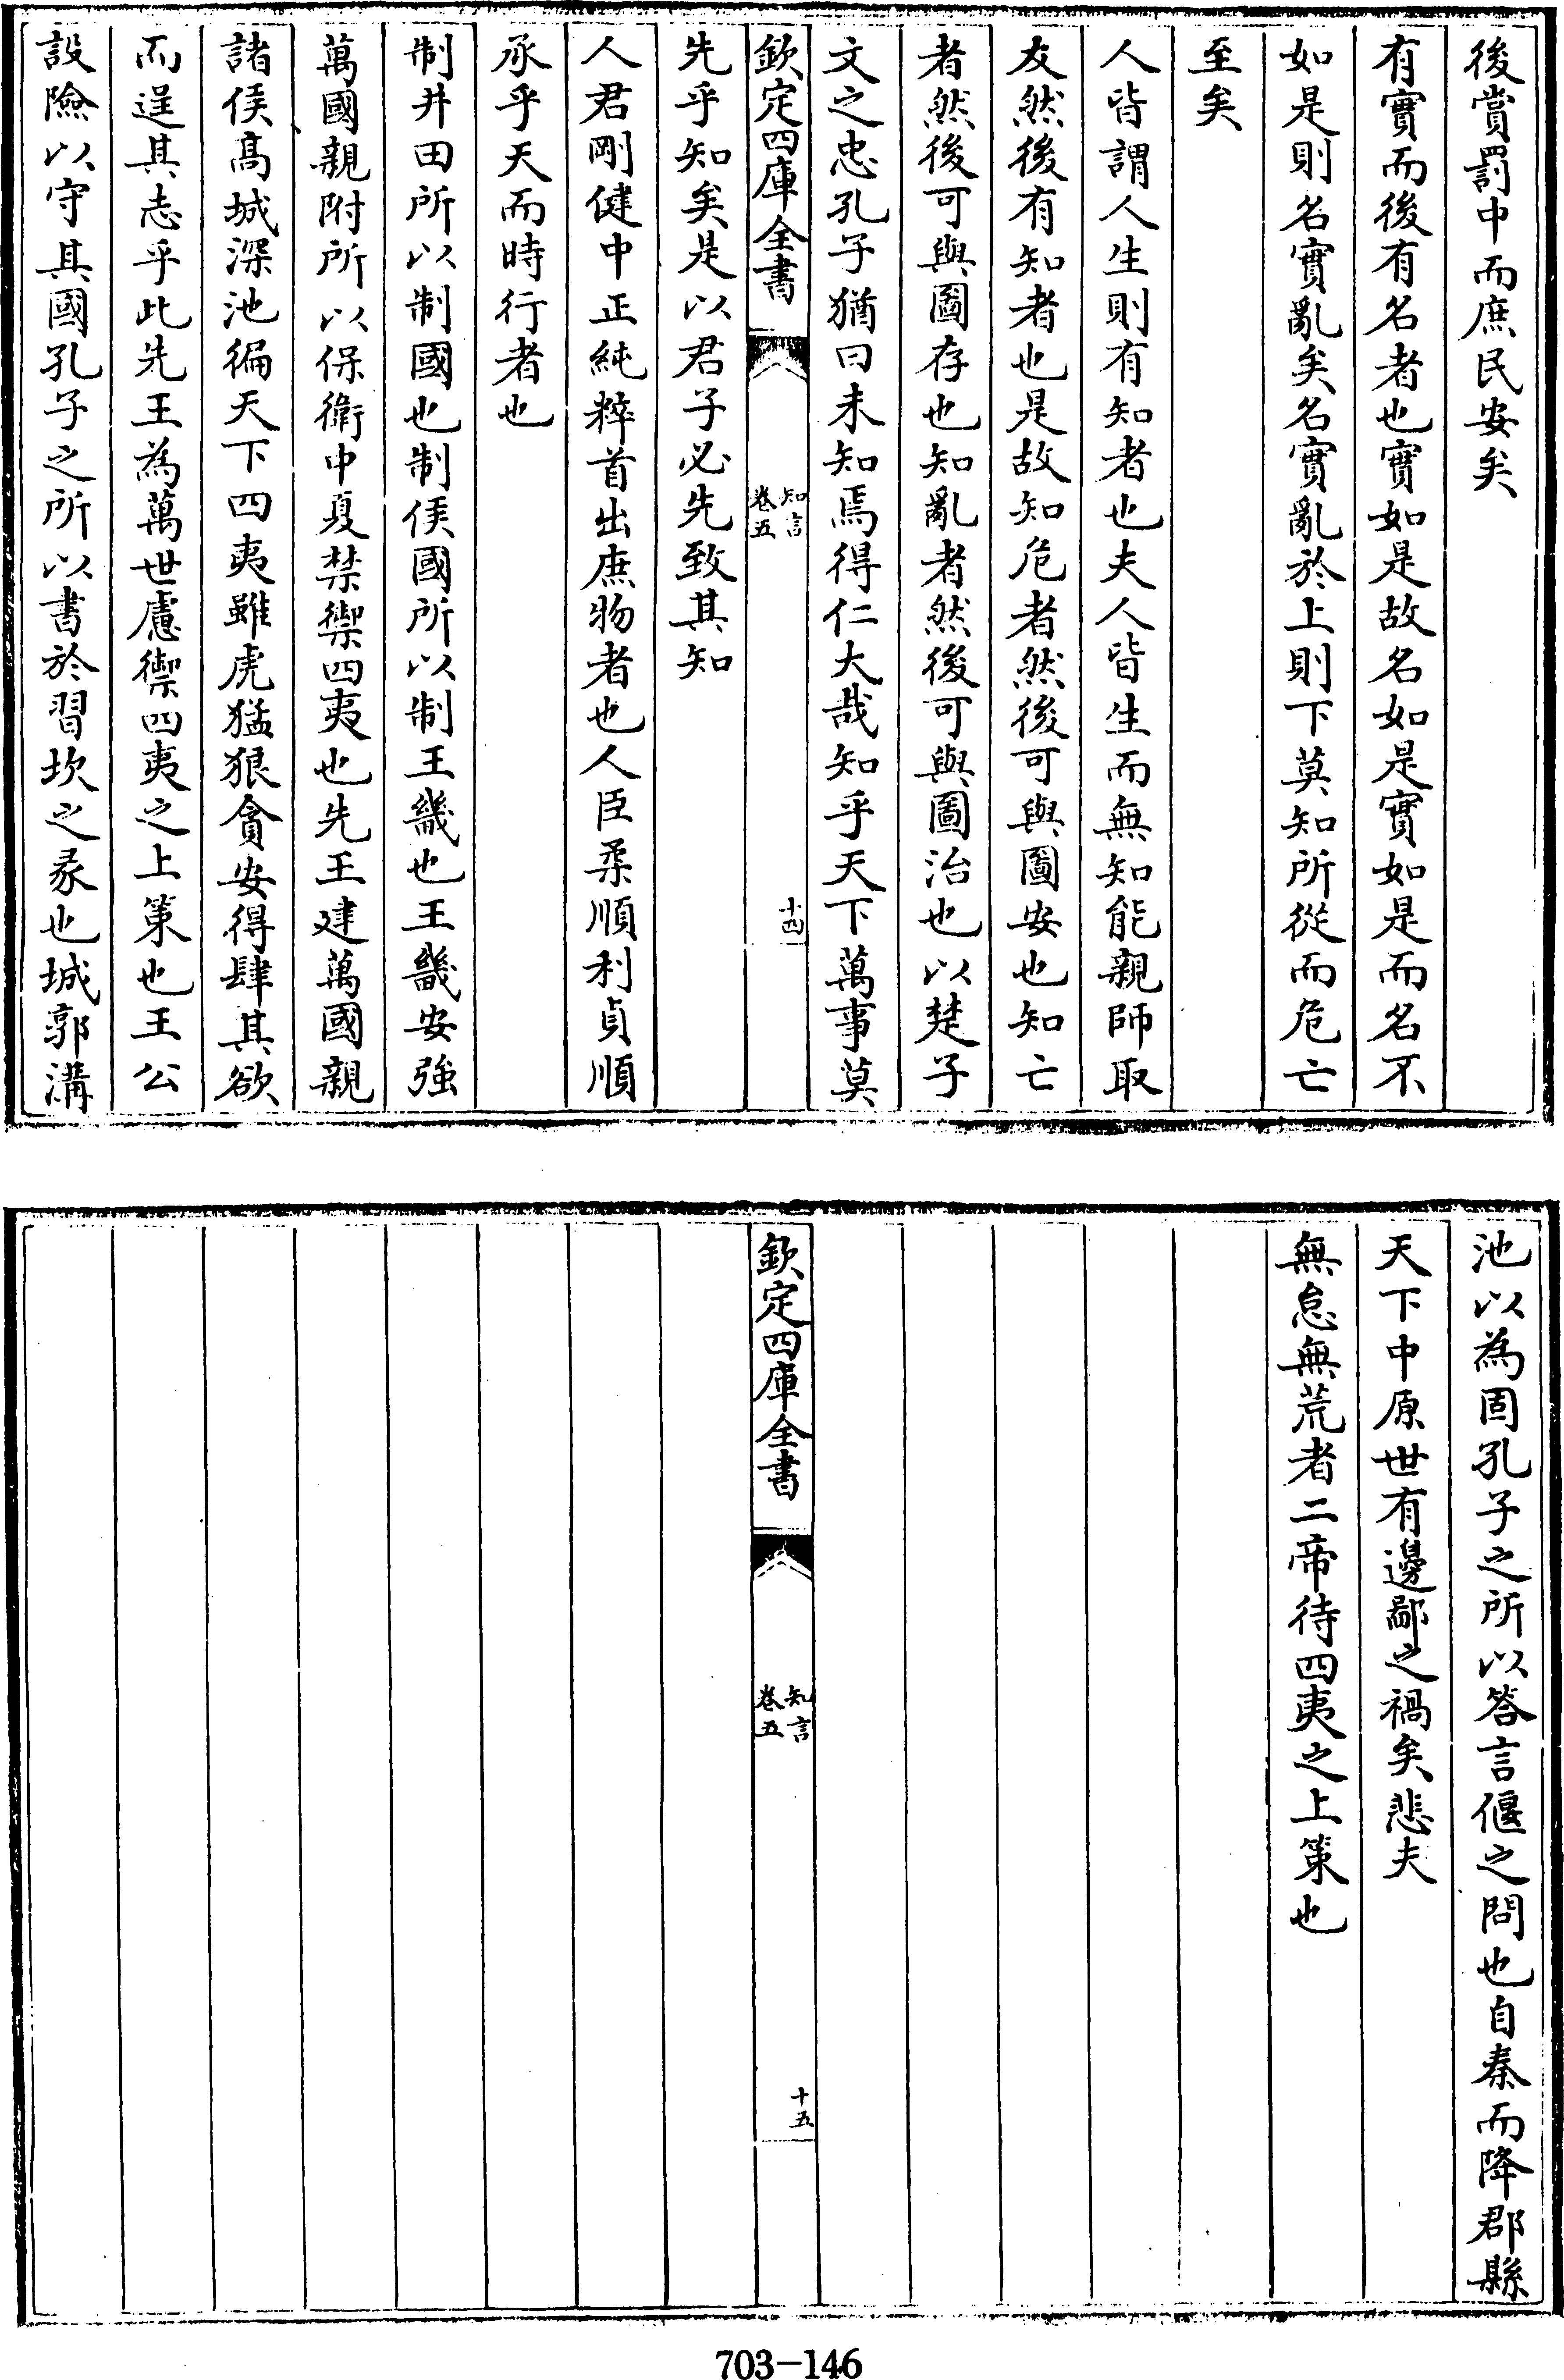 後賞罰中而庶民安矣
有實而後有名者也實如是故名如是實如是而名不
如是則名實亂矣名實亂於上則下莫知所從而危亡
至矣
人皆謂人生則有知者也夫人皆生而無知能親師取
友然後有知者也是故知危者然後可與圖安也知亡
者然後可與圖存也知亂者然後可與圖治也以楚子
文之忠孔子猶曰未知焉得仁大哉知乎天下萬事莫
欽定四庫全書
知言
卷五
十四
先乎知矣是以君子必先致其知
人君剛健中正純粹首出庶物者也人臣柔順利貞順
承乎天而時行者也
制井田所以制國也制侯國所以制王畿也王畿安強
萬國親附所以保衛中夏禁禦四夷也先王建萬國親
諸侯高城深池徧天下四夷雖虎猛狼貪安得肆其欲
而逞其志乎此先王為萬世慮禦四夷之上策也王公
設險以守其國孔子之所以書於習坎之彖也城郭溝
池以為固孔子之所以答言偃之問也自秦而降郡縣
天下中原世有邊鄙之禍矣悲夫
無怠無荒者二帝待四夷之上策也
欽定四庫全書
知言
卷五
十五
703-146